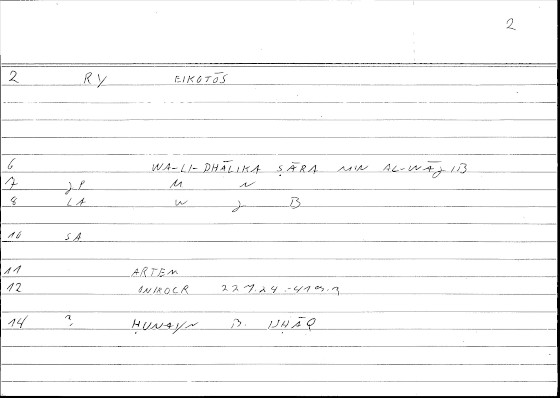 2
2 RY EIKOTŌS
6 WA-LI-DHĀLIKA ṢĀRA MIN AL-WĀJIB
7 JP M N
8 LA W J B
10 SA
11 ARTEM
12 ONIROCR
14 ? ḤUNAYN B. ISḤĀQ